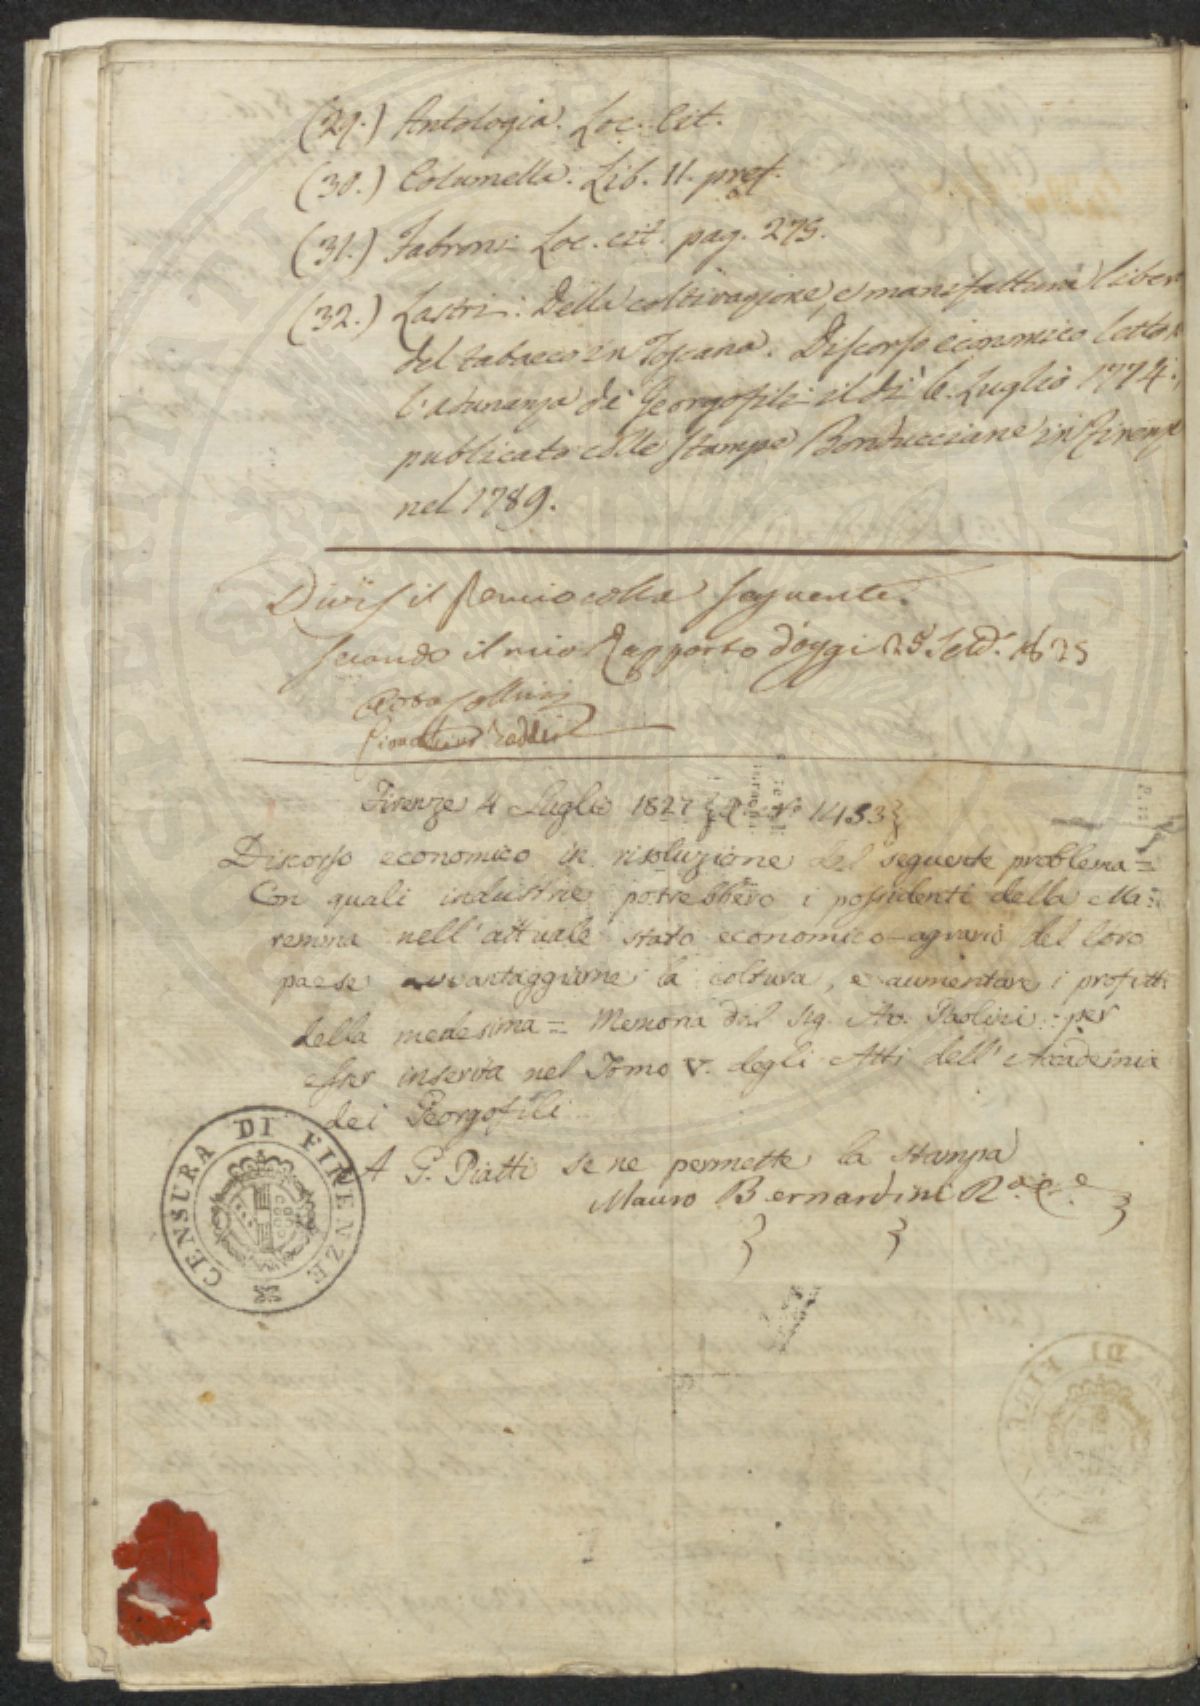 (29.) Antologia. Loc. Cit.
(30.) Columella. Lib. 11. pref.
(31.) Fabroni Loc. cit. pag. 275.
(32.) Lastri: Della coltivazione, e manifattura liber
del tabacco in Toscana. Discorso economico letto
l'adunanza de' Georgofili il dì 6. Luglio 1774.,
publicato colle stampe Bonducciane in Firenze
nel 1789.
seguente
secondo il mio Rapporto d'oggi 25
Firenze 4 Luglio 1827 1433
Discorso economico in risoluzione del seguente problema =
Con quali industrie potrebbero i possidenti della Ma=
remma nell'attuale stato economico-agrario del loro
paese avvantaggiarne la coltura, e aumentare i profitti
della medesima = Memoria del Sig. Av. Paolini per
esser inserita nel Tomo V. degli Atti dell'Accademia
dei Georgofili
A G. Piatti se ne permette la stampa
Mauro Bernardini
CENSURA DI FIRENZE